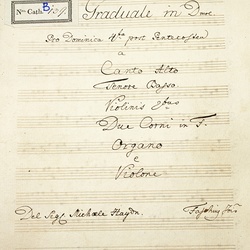 Nro Cath. B
Graduale in D mol.
Pro Dominica 4ta post Pentecosten
a
Canto Alto
Tenore Basso
Violinis 2bus
Due Corni in F.
Organo
e
Violone
Del Sigl Michaele Haydn.